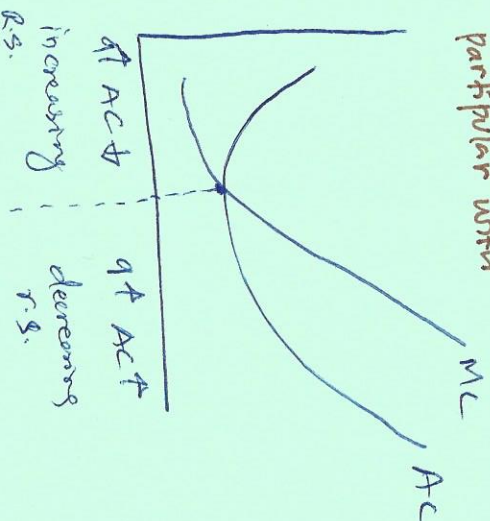 partipular with
MC
AC
q↑ AC↓
q↑ AC↑
increasing
R.S.
decreasing
r.s.